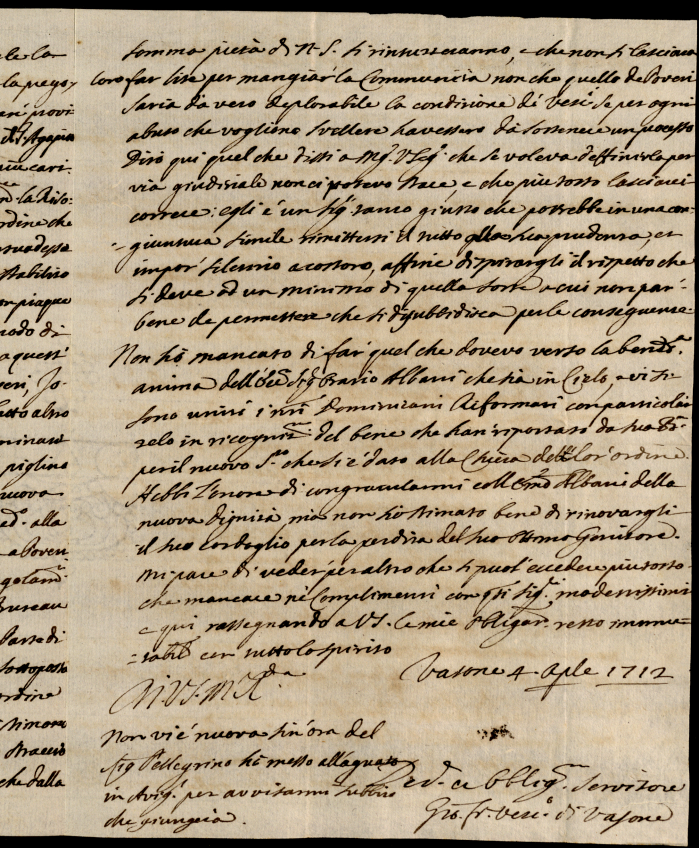 somma pietà di N. S. si rintuzzeranno, e che non si lasciara
loro far lite per mangiar la Communità non che quello de Poveri
saria da vero deplorabile la condizione di Vesc.i se per ogni
abuso che vogliono svellere havessero da sostenere un processo
Dirò qui quel che dissi a Mg.r V.Leg.o che se voleva deffinirla per
via giudiziale non ci potevo stare, e che più tosto lasciarei
correre: egli è un sig.r tanto giusto che potrebbe in una con=
=giuntura simile rimettersi il tutto alla sua prudenza, et
impor silenzio a costoro, affine d'ispirargli il rispetto che
si deve ad un minimo di quella sorte a cui non par'
bene de permettere che si disubbidisca per le conseguenze
Non hò mancato di far quel che dovevo verso la bened.a
anima dell' Sig.r Orazio Albani che sia in Cielo, e vi si
sono uniti i nri Dominicani Reformati con particolar
zelo in ricogniz.ne del bene che han riportato da Sua S.tà
per il nuovo che si è dato alla Chiesa dell lor' ordine.
Hebbi l'onore di congratularmi coll Em.o Albani della
nuova dignità, ma non hò stimato bene di rinovargli
il suo cordoglio per la perdita del suo Ottimo Genitore.
Mi pare di veder per altro che si puol' eccedere più tosto
che mancare ne Complimenti con q.ti Sig.ri modestissimi
e qui rassegnando a VS. le mie obligaz. resto immu=
=tabil.e con tutto lo spirito
Vasone 4. Aple 1712
Di VS. M R.da
Non vi è nuova sin' ora del
Sig Pellegrino hò messo all'aguato
in Avig. per avvisarmi subbito
che giungerà.
Ded.mo et Obblig.mo Servitore
Gio. Fr. Vesc.o di Vasone
ele la
la pegg
ari provi
più cari
la Riso=
rdine che
stabilito
modo di
a quest'
veri, Io=
tutto altro
piglino
nuova
ed. alla
a Poveri
Bureau
Parte di
sottoposto
rdine
stimam
Braccio
che dalla